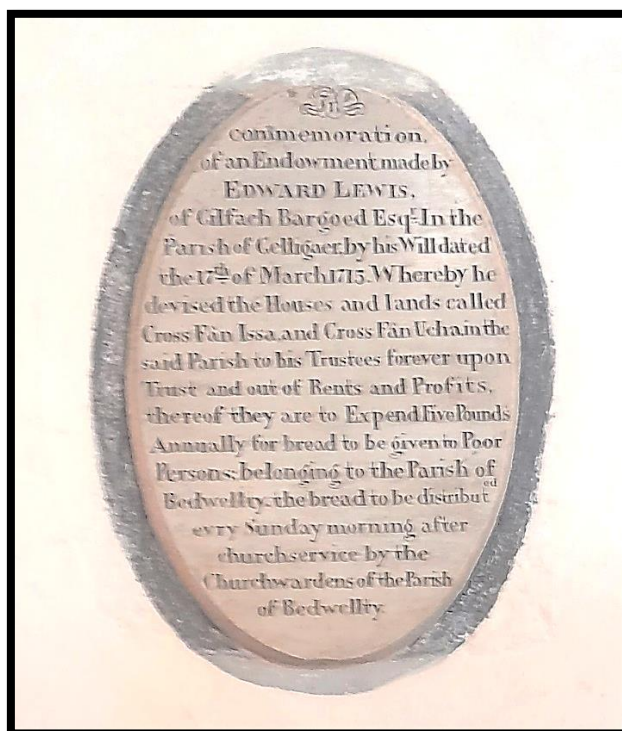 In
commemoration,
of an Endowment made by
EDWARD LEWIS,
of Gilfach Bargoed Esqr. In the
Parish of Gelligaer, by his Will dated
the 17th of March 1715. Whereby he
devised the Houses and lands called
Cross Fân Issa, and Cross Fân Ucha in the
said Parish to his Trustees forever upon
Trust and out of Rents and Profits,
thereof they are to Expend Five Pounds
Annually for bread to be given to Poor
Persons; belonging to the Parish of
Bedwellty. the bread to be distributed
evry Sunday morning after
church service by the
Churchwardens of the Parish
of Bedwellty.